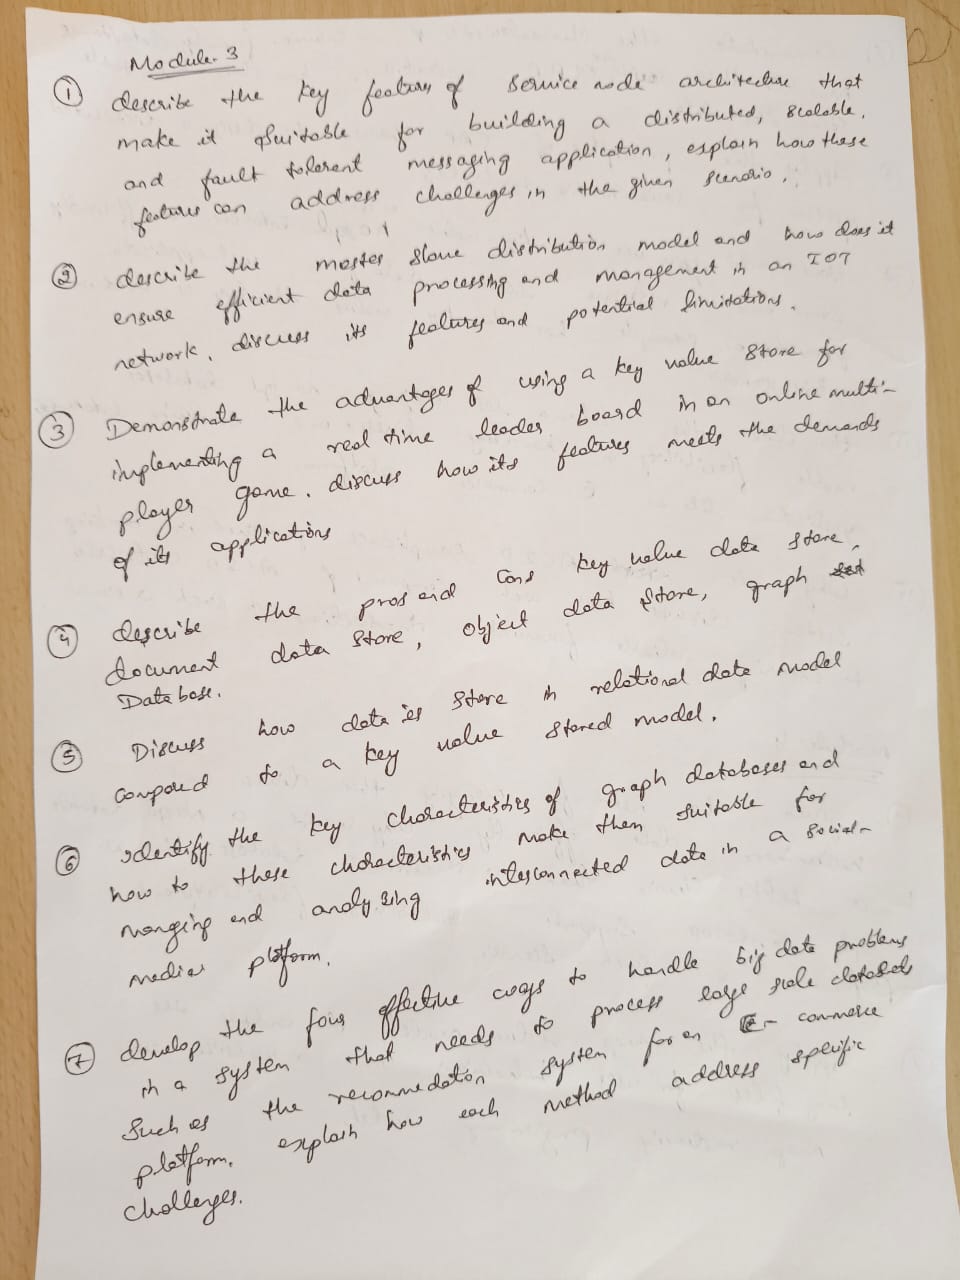 Module. 3
① describe the key featurs of Service node architecture that
make it Suitable for building a distributed, Scalable,
and fault tolerent messaging application, explain how these
features can address challenges in the given scenario.
② describe the master slave distribution model and how does it
ensure efficient data processing and management in an IOT
network, discuss its features and potential limitations.
③ Demonstrate the advantages of using a key value Store for
implementing a real time leader board in an online multi-
player game. discuss how its features meets the demands
of its applications
④ describe the pros and Cons key value data store,
document data store, object data store, graph
Database.
⑤ Discuss how data is store in relational data model
compared to a key value stored model.
⑥ identify the key characteristics of graph databases and
how to these characteristics make them suitable for
manging and analyzing interconnected data in a social-
media platform.
⑦ develop the four effective ways to handle big data problems
in a system that needs to process large scale datasets
Such as the recommedation system for an E- commerce
platform. explain how each method address specific
challenges.